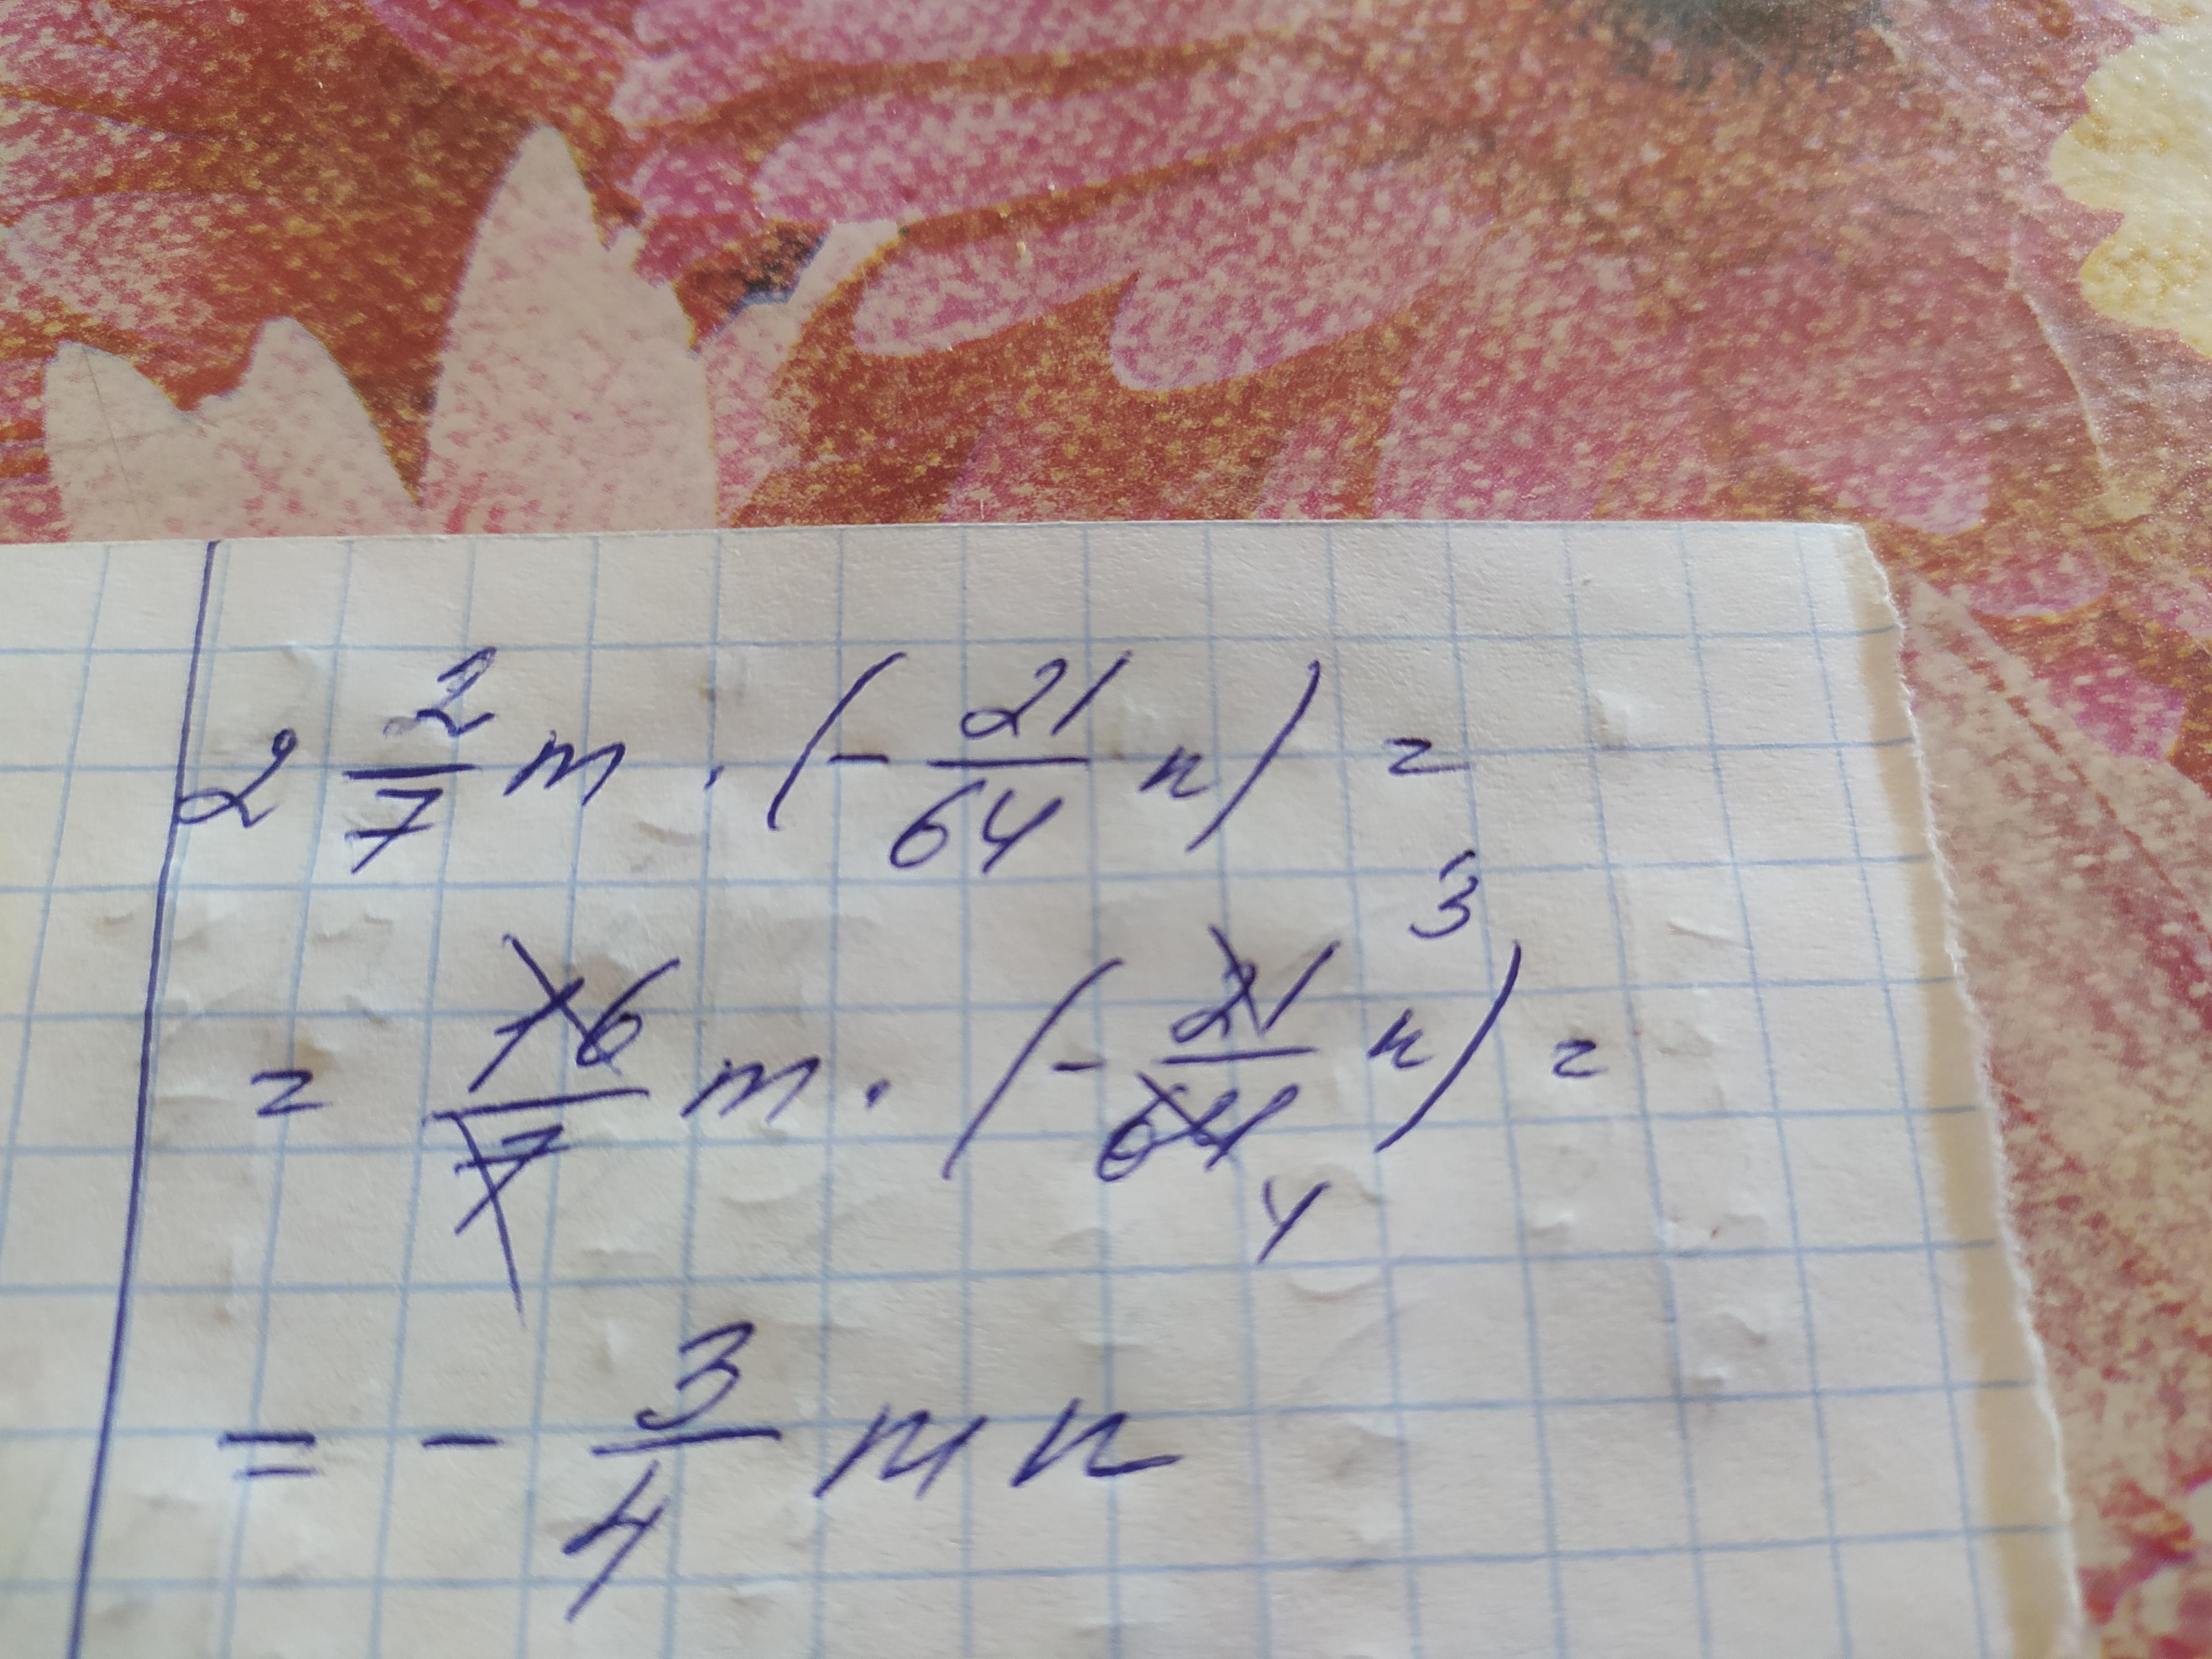 2 2/7 m · (- 21/64 n) =
= 16/7 m · (- 21/64 n) = 3 4
= - 3/4 mn